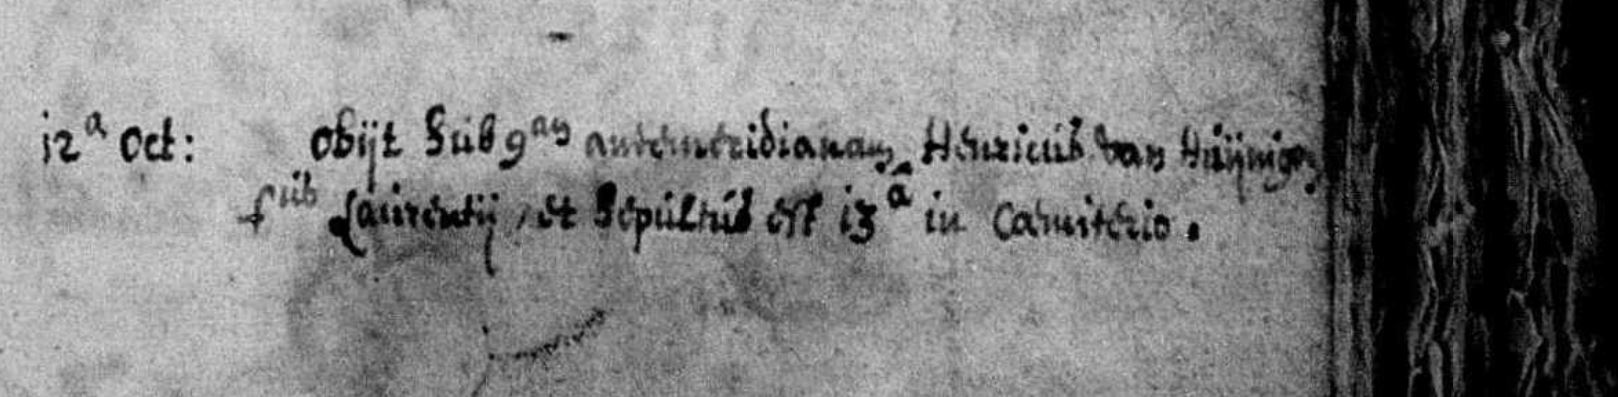 12ª Oct: obijt sub 9am antemeridianam Henricus van Huijnigen
sub Laurentij, et sepultus est 13ª in Cæmiterio.